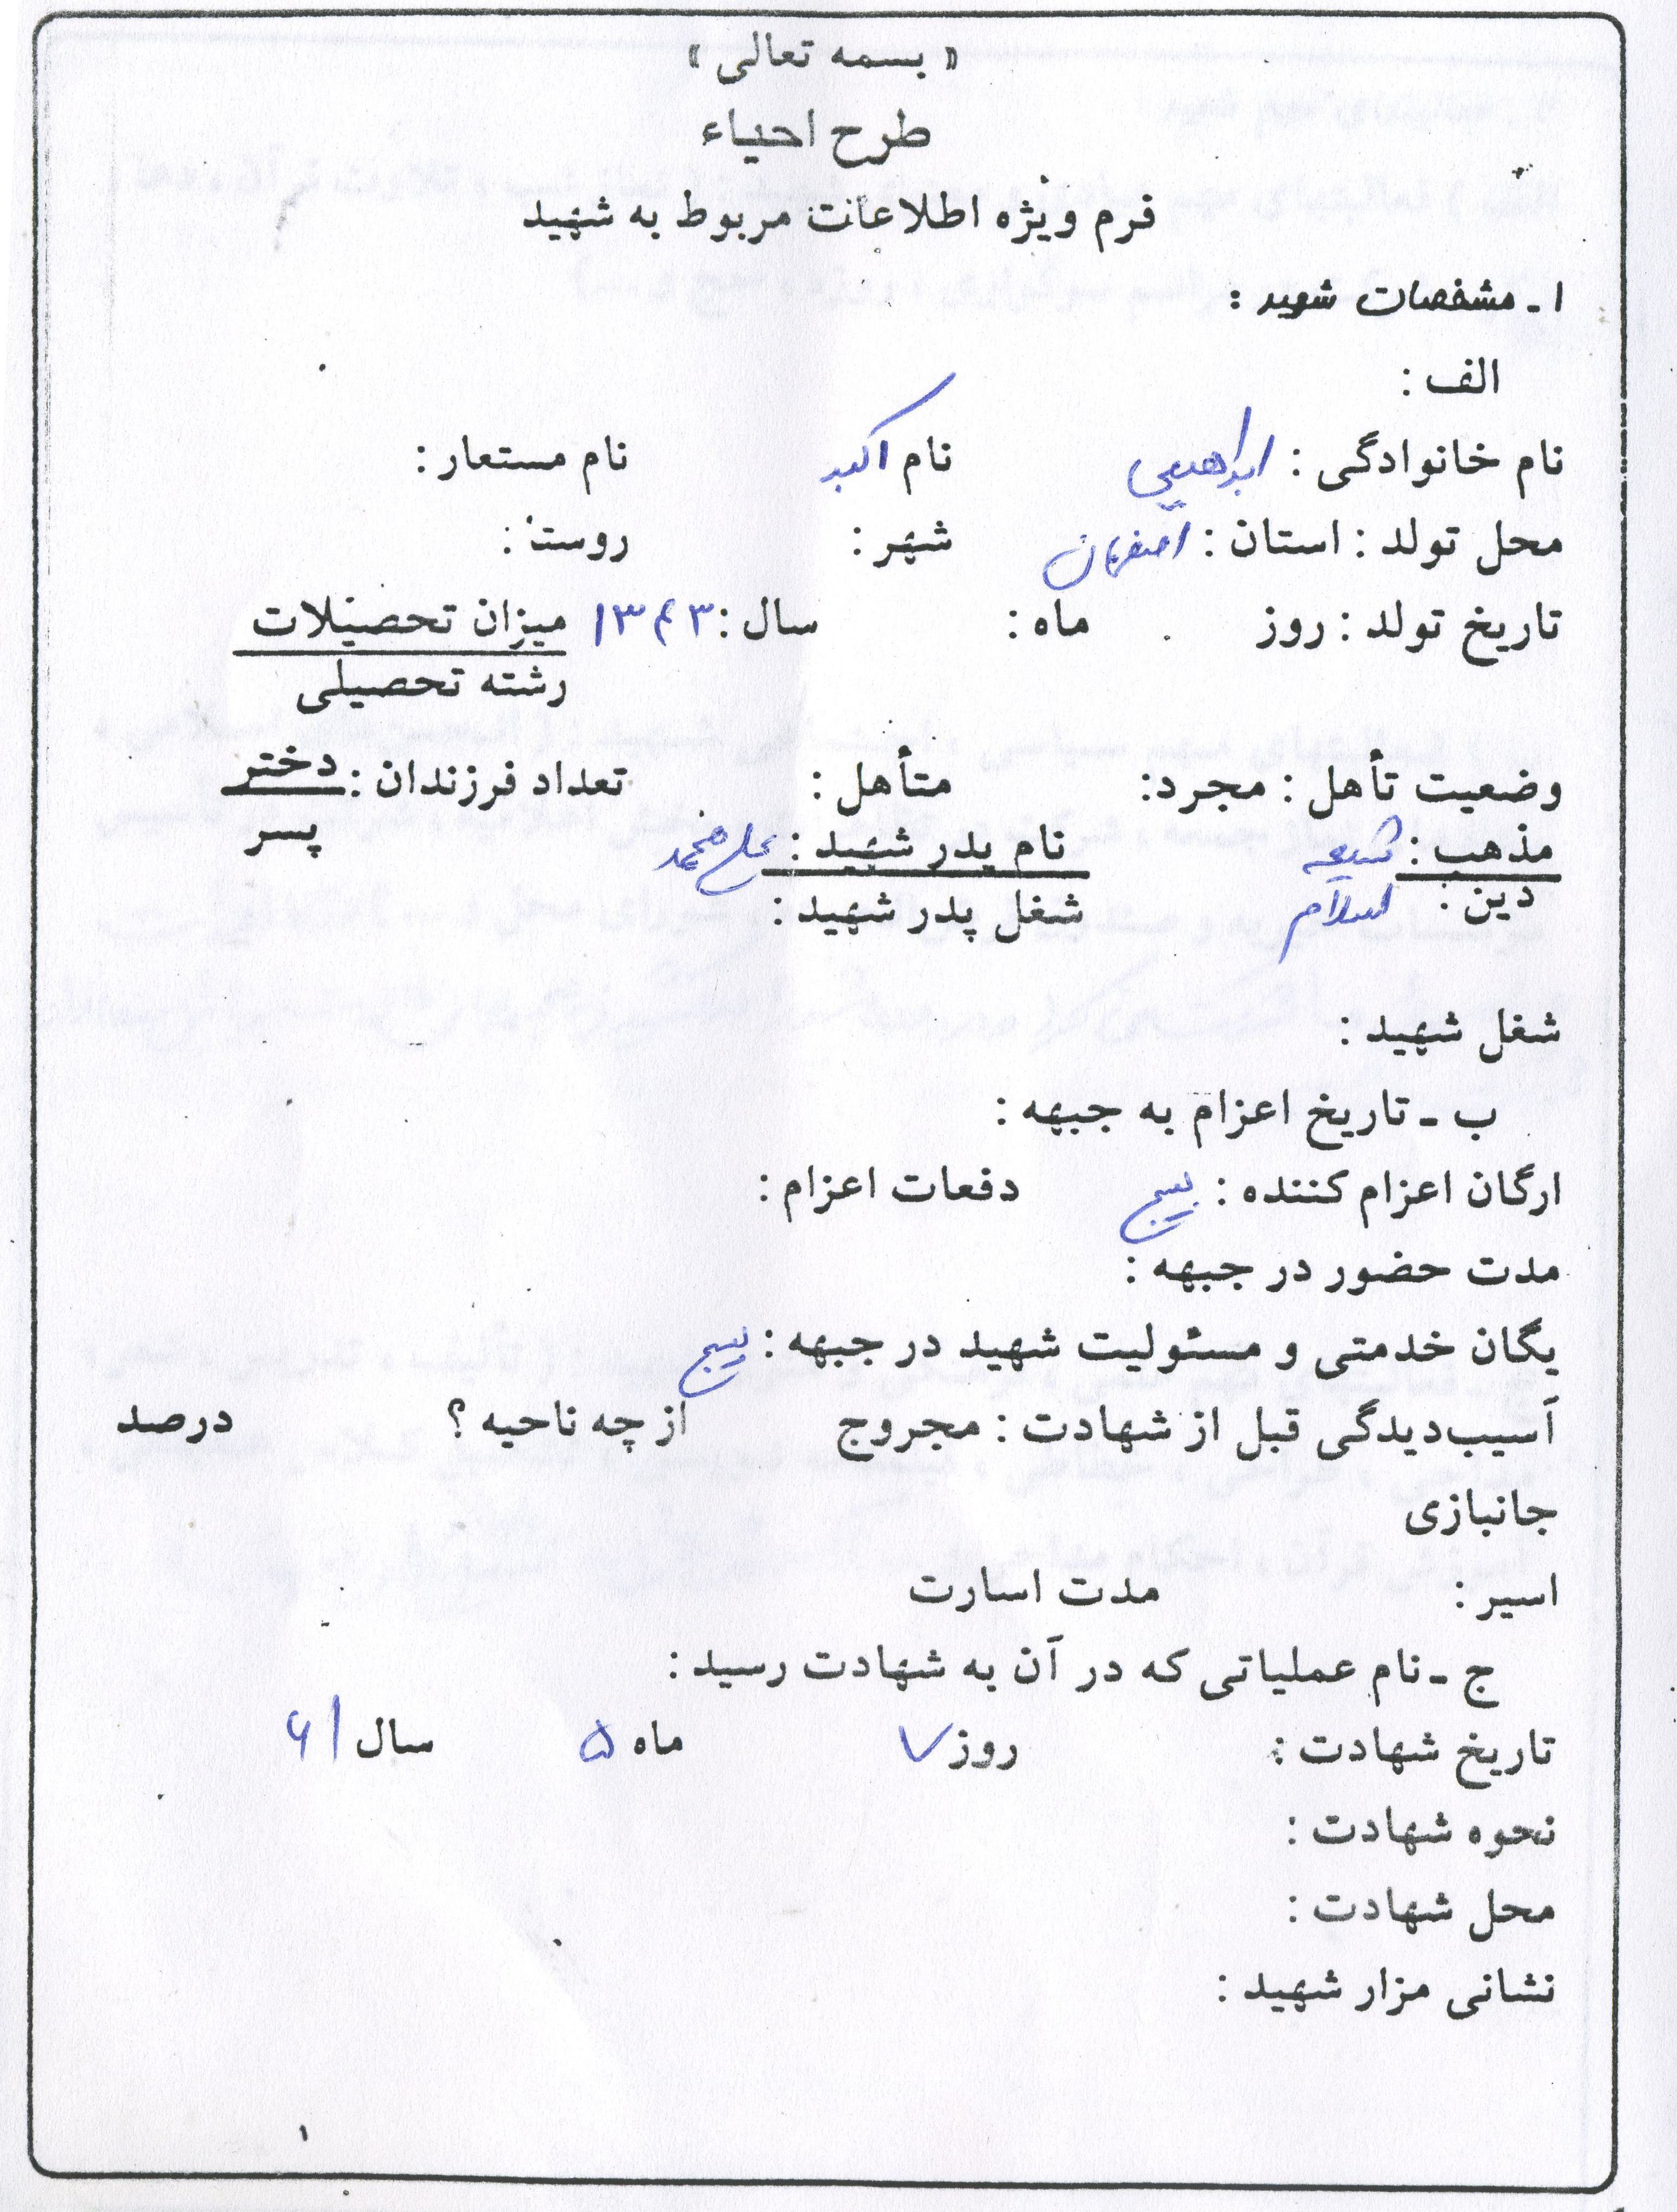 « بسمه تعالی »
طرح احیاء
فرم ویژه اطلاعات مربوط به شهید
۱ - مشخصات شهید :
الف :
نام خانوادگی : ابراهیمی نام اکبر نام مستعار :
محل تولد : استان : اصفهان شهر : روستا :
تاریخ تولد : روز ماه : سال : ۱۳۴۳ میزان تحصیلات
رشته تحصیلی
وضعیت تأهل : مجرد: متأهل : تعداد فرزندان : دختر
پسر
مذهب : شیعه نام پدر شهید : علی محمد
دین : اسلام شغل پدر شهید :
شغل شهید :
ب - تاریخ اعزام به جبهه :
ارگان اعزام کننده : بسیج دفعات اعزام :
مدت حضور در جبهه :
یگان خدمتی و مسئولیت شهید در جبهه : بسیج
آسیب‌دیدگی قبل از شهادت : مجروح از چه ناحیه ؟ درصد
جانبازی
اسیر : مدت اسارت
ج - نام عملیاتی که در آن به شهادت رسید :
تاریخ شهادت : روز ۷ ماه ۵ سال ۶۱
نحوه شهادت :
محل شهادت :
نشانی مزار شهید :
۱